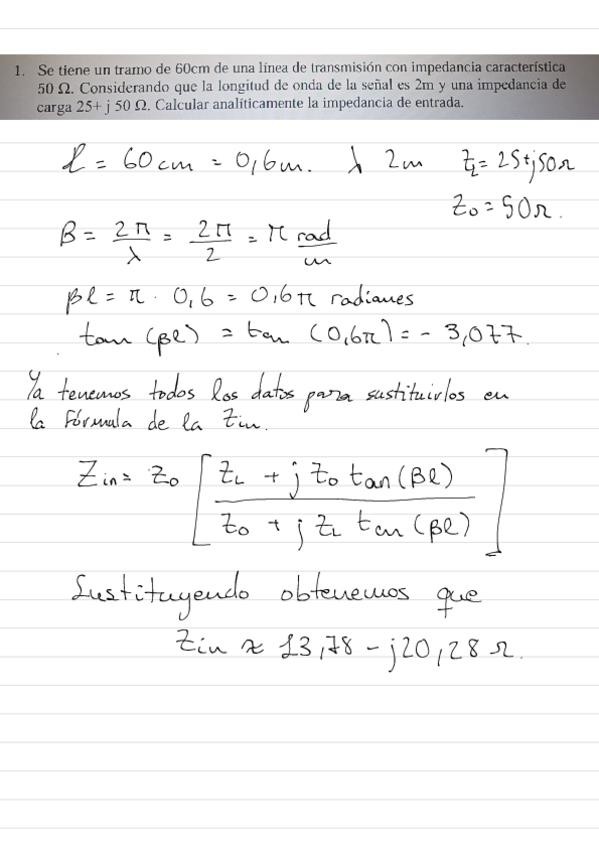 1. Se tiene un tramo de 60cm de una línea de transmisión con impedancia característica
50 Ω. Considerando que la longitud de onda de la señal es 2m y una impedancia de
carga 25+ j 50 Ω. Calcular analíticamente la impedancia de entrada.
l = 60cm = 0,6m. λ 2m ZL = 25+j50Ω
Z0 = 50Ω.
β = 2π/λ = 2π/2 = π rad/m
βl = π · 0,6 = 0,6π radianes
tan (βl) = tan (0,6π) = - 3,077.
Ya tenemos todos los datos para sustituirlos en
la fórmula de la Zin.
Zin = Z0 [ (ZL + j Z0 tan(βl)) / (Z0 + j ZL tan(βl)) ]
Sustituyendo obtenemos que
Zin ≈ 13,78 - j20,28 Ω.